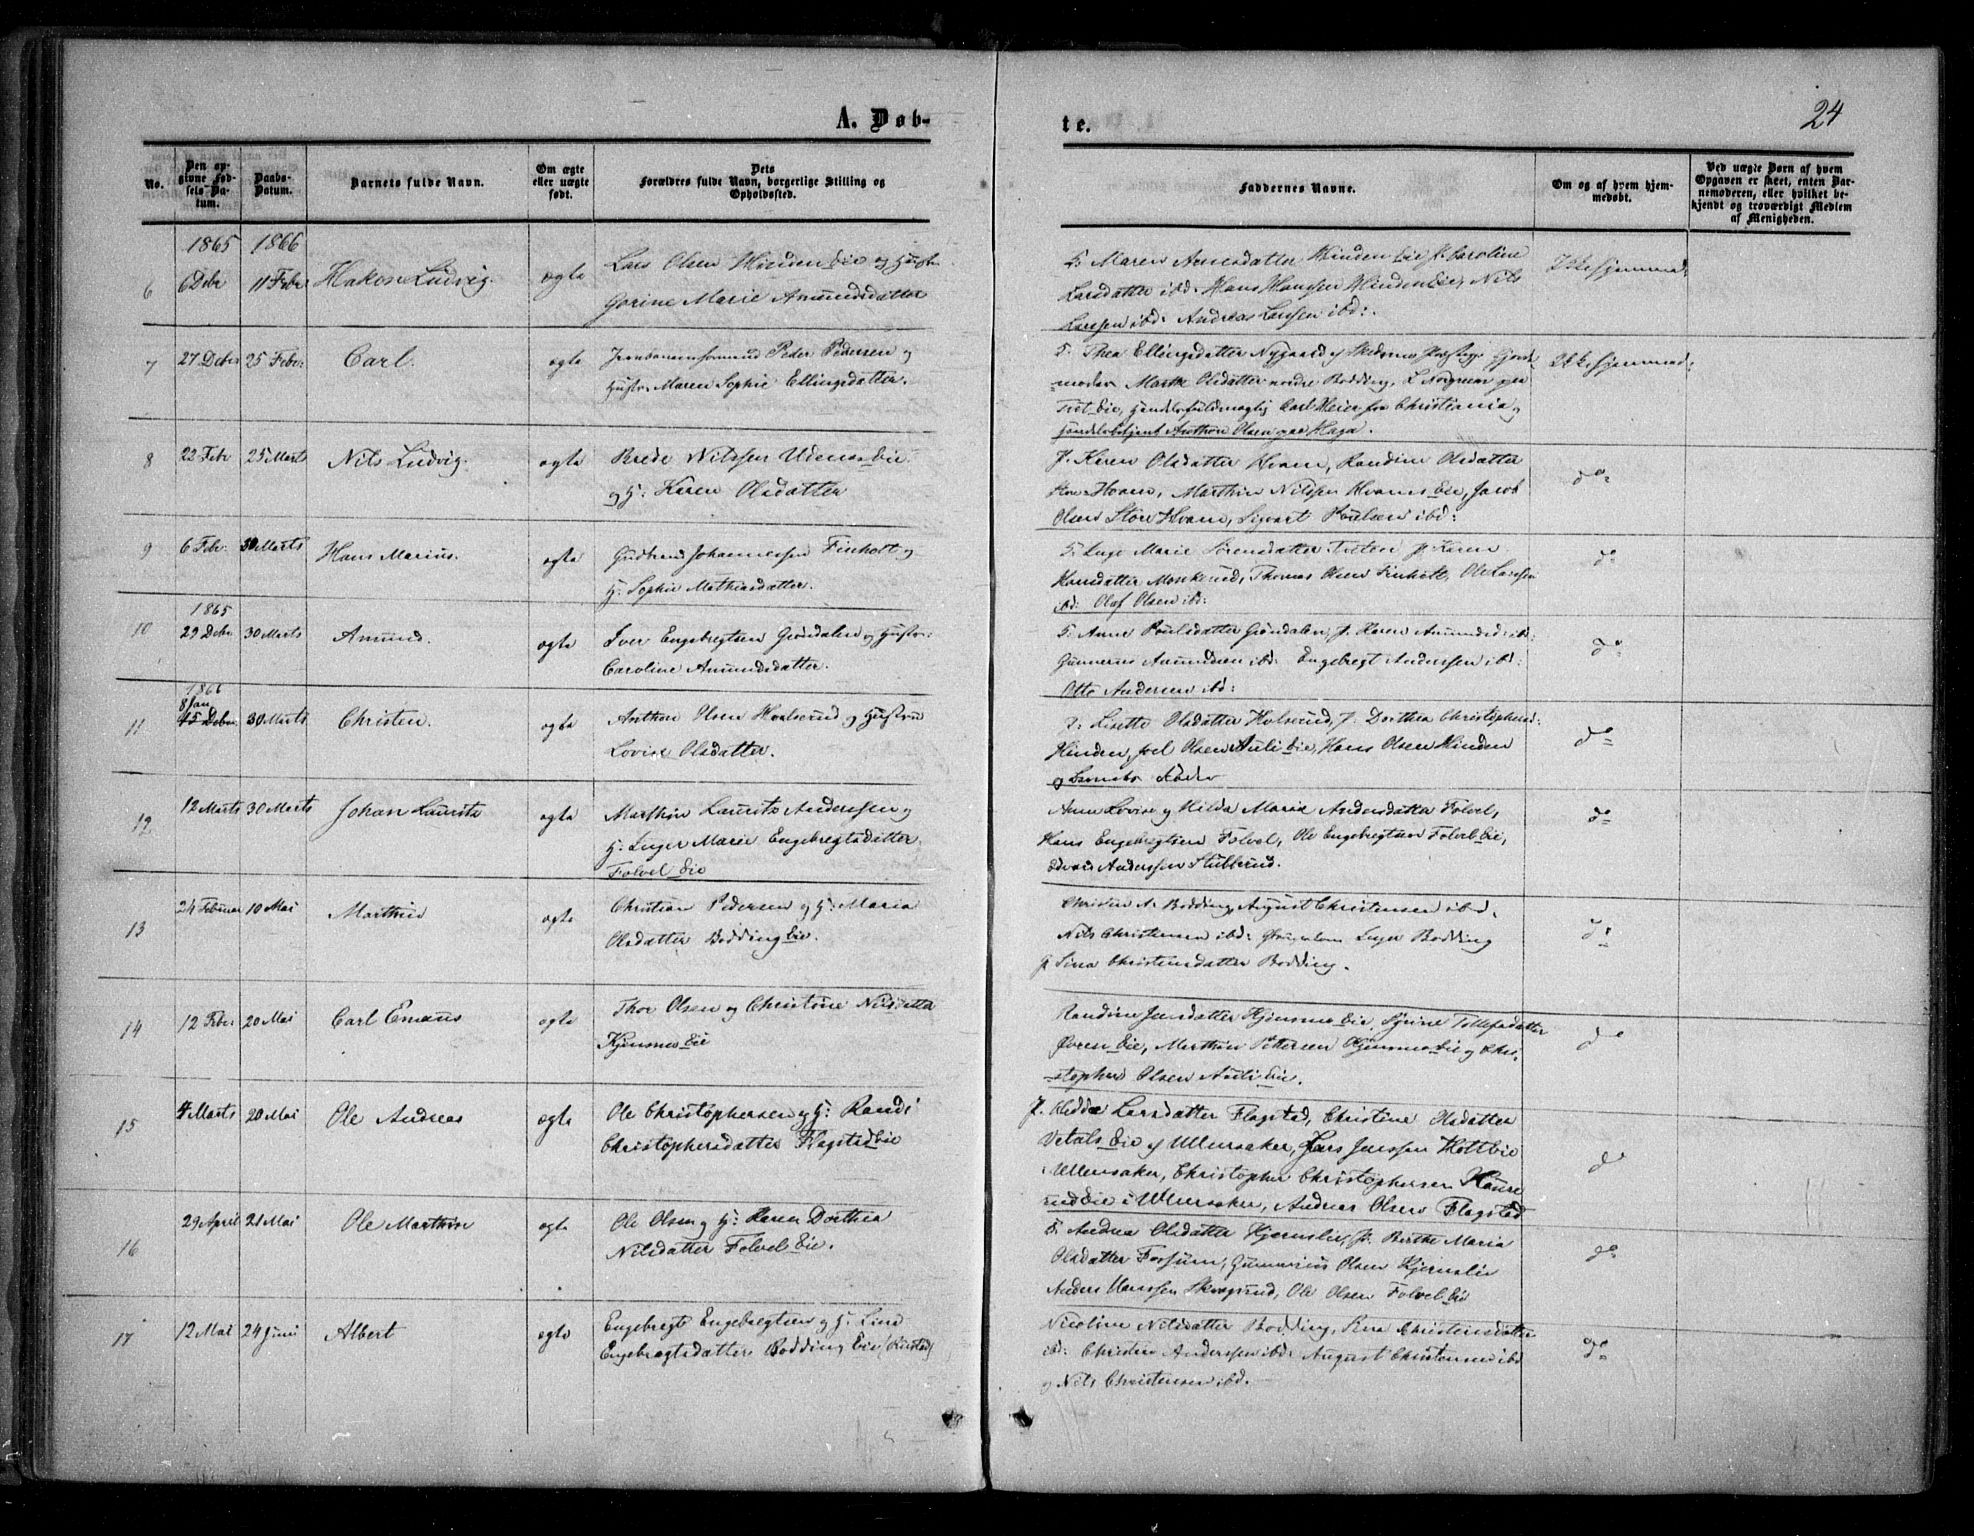 24
A. Døb-
te.
No.
Den op-
givne Fød-
sels-Da-
tum.
Daabs-
Datum.
Barnets fulde Navn.
Om ægte
eller uægte
født.
Dets
Forældres fulde Navn, borgerlige Stilling og
Opholdssted.
Faddernes Navne.
Om og af hvem hjem-
medøbt.
Ved uægte Børn af hvem
Opgaven er skeet, enten Bar-
nemoderen, eller hvilket be-
kjendt og troværdigt Medlem
af Menigheden.
1865 1866
6 6 Debr 11 Febr Hakon Ludvig. ægte Lars Olsen Hinden Eie og Hustr
Gorine Marie Amundsdatter
F. Maren Arnesdatter Hinden Eie J. Caroline
Larsdatter ibd. Hans Hansen Hinden Eie, Nils
Larsen ibd. Andreas Larsen ibd:.
Ikke hjemmed:
7 27 Debr 25 Febr: Carl. ægte Jernbaneformand Peder Pedersen og
Hustr. Maren Sophie Ellingsdatter.
F. Thea Ellingsdatter Nygaard af Skedsmo Præstegj. Gjord-
moder Marthe Olsdatter nordre Bodding, L Norgreen paa
Eie, Handelsfuldmægtig Carl Meier fra Christiania og
Handelsbetjent Anthon Olsen paa Haga.
Ikke hjemmed:
8 22 Febr 25 Marts Nils Ludvig. ægte Brede Nilssen Udenes Eie.
og H: Karen Olsdatter
J. Karen Olsdatter Hvam, Randine Olsdatter
store Hvam, Marthin Nilssen Hvams Eie, Jacob
Olsen Store Hvam, Sigvart Poulsen ibd:
do
9 6 Febr. 30 Marts Hans Marius. ægte Gudbrand Johannessen Finholt og
H. Sophie Mathiasdatter.
F. Inge Marie Sørensdatter J. Karen
Hansdatter Monkerud, Thomas Olsen Finholt, Ole Larssen
ibd: Olaf Olsen ibd:
do
1865
10 29 Debr 30 Marts Amund. ægte Iver Engebregtsen Grøndalen og Hustr:
Caroline Amundsdatter.
F. Anne Poulsdatter Grøndalen, J. Karen Amundsd ibd:
Gunnerus Amundsen ibd: Engebregt Anderssen ibd:
Otto Andersen ibd:
do
1866
8 Jan
11 15 Debr 30 Marts Christen. ægte Anthon Olsen Hvalserud og Hustru
Lovise Olsdatter.
F: Lisette Olsdatter Holserud, J. Dorthea Christophersd:
Hinden, Joel Olsen Auli Eie, Hans Olsen Hinden
og
do
12 12 Marts 30 Marts Johan Lauritz ægte Marthin Lauritz Anderssen og
H. Inger Marie Engebregtsdatter
Folvel Eie
Anne Lovise og Hilda Marie Andersdatter Folvel,
Hans Engebregtsen Folvel, Ole Engebregtsen Folvel Eie,
Edvard Anderssen Stubberud.
do
13 24 Februar 10 Mai Marthin ægte Christian Pedersen og H: Maria
Olsdatter Bodding Eie.
Christen A. Bodding, August Christensen ibd.
Nils Christensen ibd: Inger Bodding
J Sina Christensdatter Bodding.
do
14 12 Febr 20 Mai Carl Emaus ægte Thor Olsen og Christine Nilsdatter
Hjemmes Eie
Randine Jensdatter Hjemmes Eie, Syrine Tollefsdatter
Øvren Eie, Marthin Pettersen Hjemmes Eie og Chri-
stopher Olsen Auli Eie.
do
15 4 Marts 20 Mai Ole Andreas ægte Ole Christophersen og H: Randi
Christophersdatter Flagstad Eie
J. Hedda Larsdatter Flagstad, Christine Olsdatter
Vetals Eie af Ullensaker, Lars Jenssen Holt Eie
Ullensaker, Christopher Christophersen
Eie i Ullensaker, Andreas Olsen Flagstad
do
16 29 April 21 Mai Ole Marthin ægte Ole Olsen og H: Karen Dorthea
Nilsdatter Folvel Eie.
F. Andrea Olsdatter Hjernslie, J. Berthe Maria
Olsdatter Fossum, Gunnerius Olsen Hjernslie
Anders Hanssen Skovgrud, Ole Olsen Folvel Eie
do
17 12 Mai 24 Juni Albert ægte Engebregt Engebregtsen og H. Lina
Engebregtsdatter Bodding Eie
Nicoline Nilsdatter Bodding, Sina Christensdatter
ibd: Christen Anderssen ibd: August Christensen ibd
og Nils Christensen ibd.
do